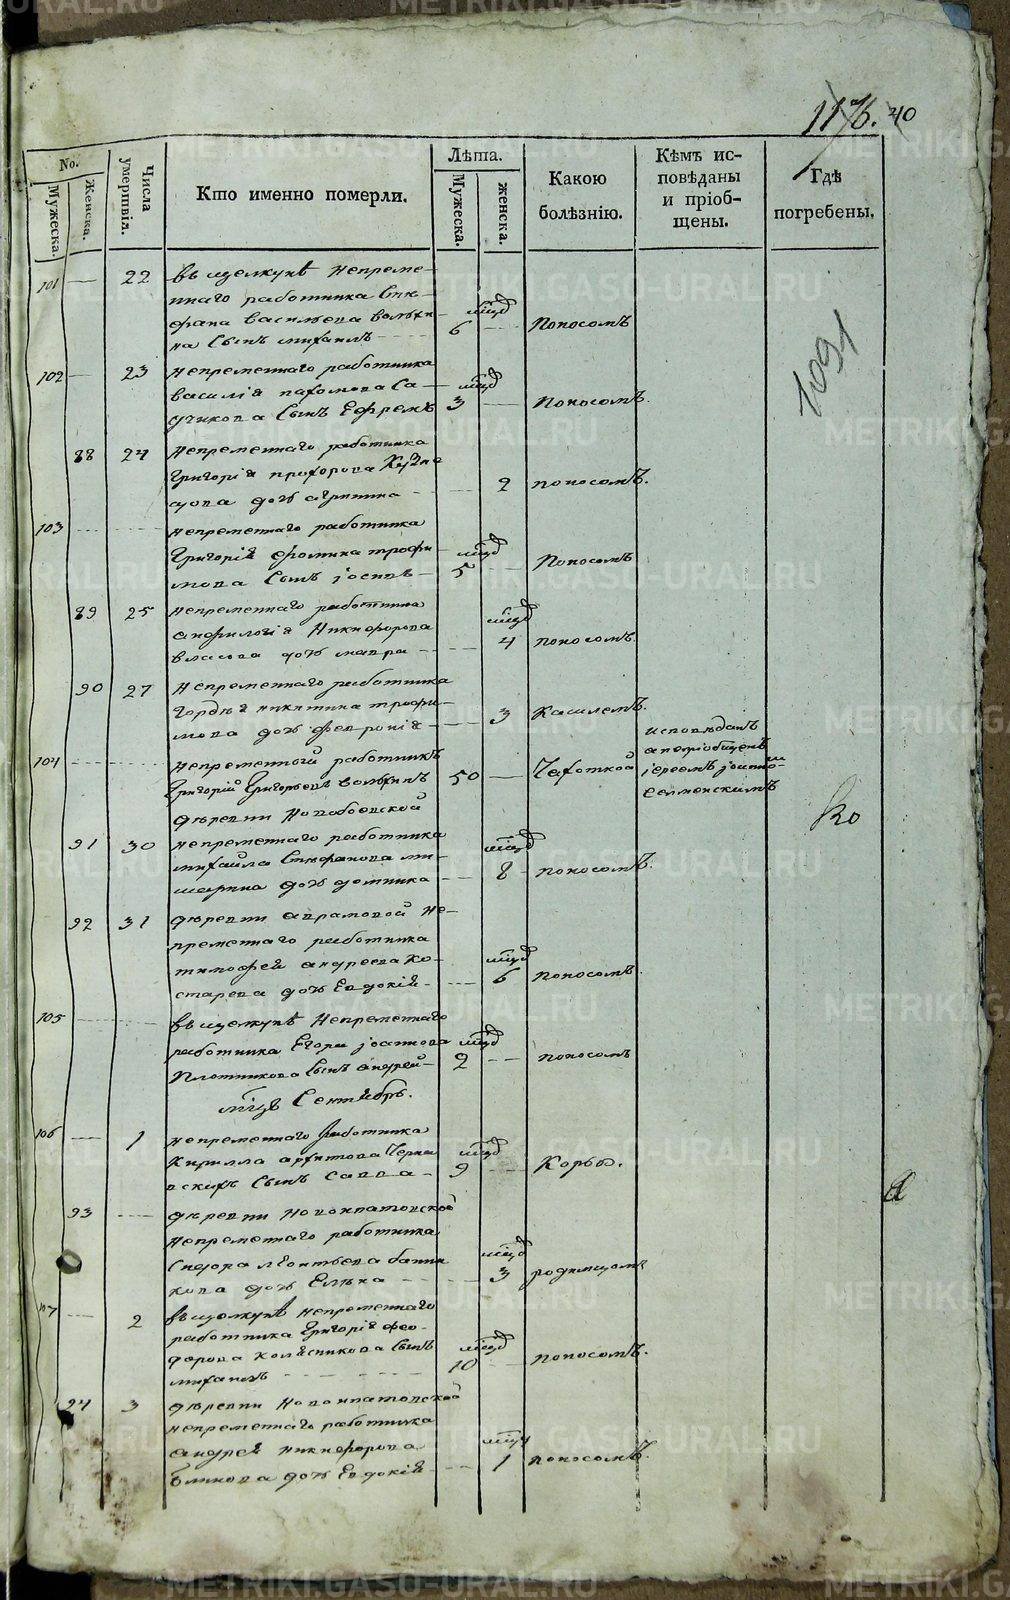 1176. 40
No.
Мужеска.
Женска.
Числа умертвіл.
Кто именно померли.
Лѣта.
Мужеска.
женска.
Какою болѣзнію.
Кѣмъ ис-
повѣданы
и пріоб-
щены.
Гдѣ
погребены.
1091
101 — 22 въ щелкунѣ непреме-
ннаго работника Сте-
фана васильева волхи- мцд
на Сынъ михаилъ 6 — поносомъ
102 — 23 непременнаго работника
василія пахомова Са- мцд
сынъ Ефремъ 3 — поносомъ.
88 24 непременнаго работника
григорія прохорова Кузне
цова дочь агрипина — 2 поносомъ.
103 непременнаго работника
Григорія трофи- мцд
мова Сынъ іосипъ 5 — поносомъ
89 25 непременнаго работника
Никифорова мцд
власова дочь мавра — 4 поносомъ
90 27 непременнаго работника
гордѣя никитина трофи-
мова дочь февронія — 3 Кашлемъ.
104 непременной работникъ
Григорій Григорьевъ волхинъ 50 — Чахоткой
исповѣданъ
и пріобщенъ
іереемъ іоанно
Селменскимъ
деревни
91 30 непременнаго работника
михайла Стефанова ми- мцд
шарина дочь домника — 8 поносомъ.
Ко
92 31 деревни аврамовой Не-
пременнаго работника
тимофей андреева Ко- мцд
старева дочь Евдокія — 6 поносомъ
105 въ щелкунѣ Непременнаго
работника Егора іоаннова мцд
Плотникова Сынъ андрей 2 — поносомъ
мцъ Сентябрь.
106 — 1 непременнаго работника
Кирилла архипова Черна мцд
вскихъ Сынъ Савва 9 — Корью.
93 деревни Новоипатовской
непременнаго работника
Сидора леонтьева банни мцд
кова дочь Еленa — 3 родимцомъ
107 — 2 въ щелкунѣ непременнаго
работника Григорія фео-
дорова колесникова Сынъ мцд
михаилъ 10 — поносомъ.
94 3 деревни Новоипатовской
непременнаго работника
андрея никифорова мцд
блинова дочь Евдокія — 1 поносомъ.
METRIKI.GASO-URAL.RU